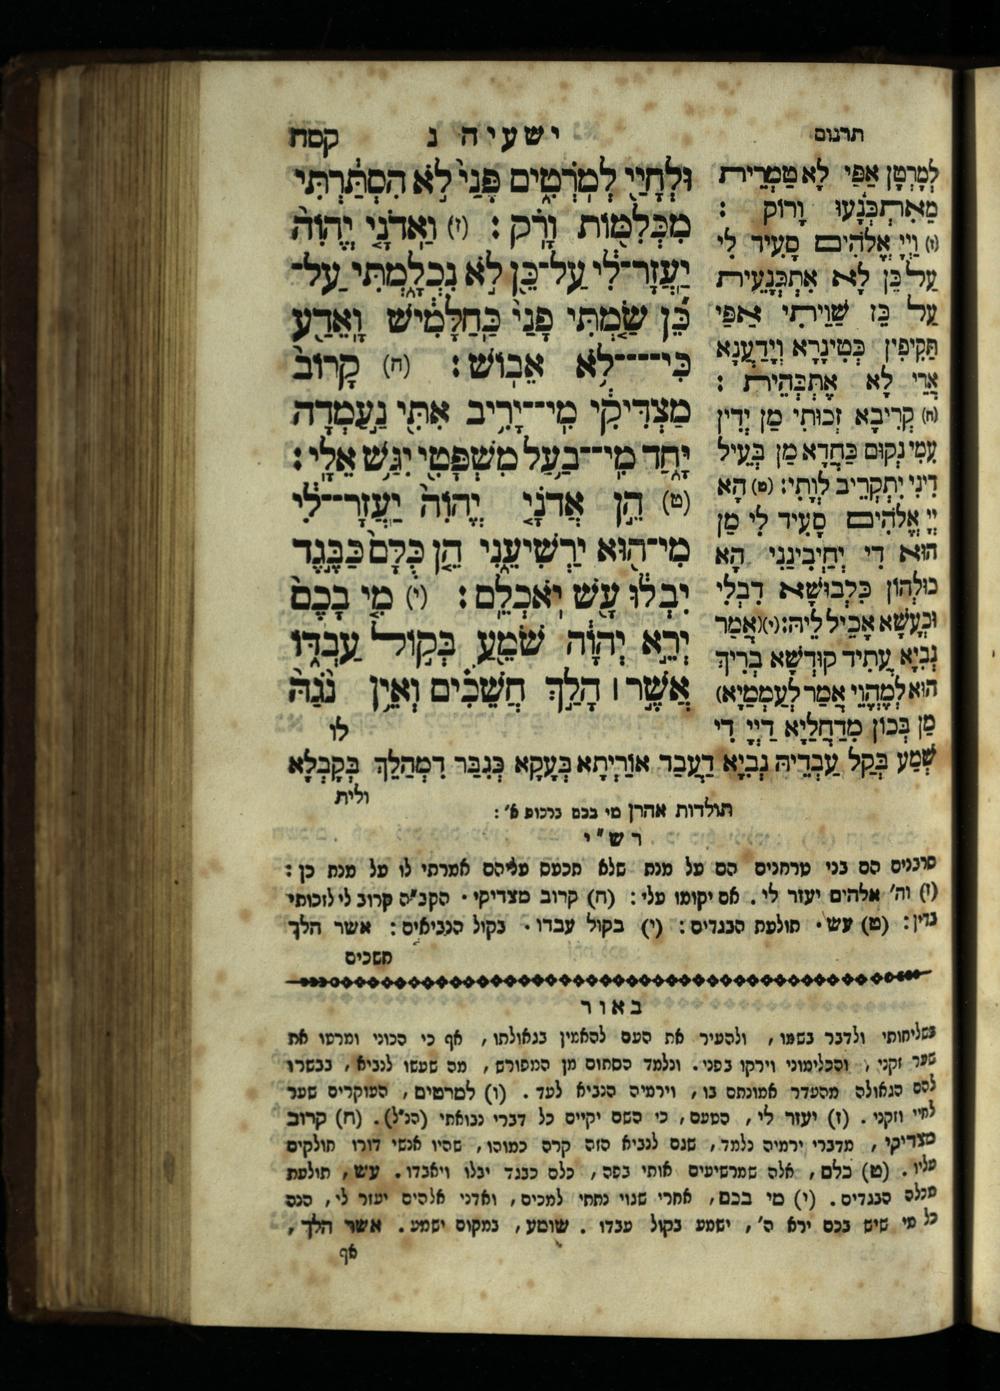 תרגום
ישעיה נ
קסח
וּלְחָיַי לְמֹרְטִים פָּנַי לֹא הִסְתַּרְתִּי
מִכְּלִמּוֹת וָרֹק : (ז) וַאדֹנָי יֱהוִֹה
יַעֲזָר־לִי עַל־כֵּן לֹא נִכְלָמְתִּי עַל־
כֵּן שַׂמְתִּי פָנַי כַּחַלָּמִישׁ וָאֵדַע
כִּי־לֹא אֵבוֹשׁ : (ח) קָרוֹב
מַצְדִּיקִי מִי־יָרִיב אִתִּי נַעַמְדָה
יָּחַד מִי־בַעַל מִשְׁפָּטִי יִגַּשׁ אֵלָי :
(ט) הֵן אֲדֹנָי יֱהוִֹה יַעֲזָר־לִי
מִי־הוּא יַרְשִׁיעֵנִי הֵן כֻּלָּם כַּבֶּגֶד
יִבְלוּ עָשׁ יֹאכְלֵם : (י) מִי בָכֶם
יְרֵא יְהוָֹה שֹׁמֵעַ בְּקוֹל עַבְדּוֹ
אֲשֶׁר ׀ הָלַךְ חֲשֵׁכִים וְאֵין נֹגַהּ
לו
לְמָרְטָן אַפַּי לָא טַמְרֵית
מֵאִתְכְּנָעוּ וָרוֹק :
(ז) וַיְיָ אֱלֹהִים סָעִיד לִי
עַל כֵּן לָא אִתְכְּנָעֵית
עַל כֵּן שַׁוֵּיתִי אַפַּי
תַּקִיפִין כְּטִינָרָא וְיָדַעְנָא
אֲרֵי לָא אֶתְבְּהֵית :
(ח) קְרִיבָא זְכוּתִי מַן יְדִין
עִמִּי נְקוּם כַּחֲדָא מַן בְּעֵיל
דִּינִי יִתְקְרִיב לְוָתִי : (ט) הָא
יְיָ אֱלֹהִים סָעִיד לִי מַן
הוּא דִי יְחַיְּבִינַּנִי הָא
כוּלְּהוֹן כִּלְבוּשָׁא דִּבְלִי
וּכְעָשָׁא אָכִיל לֵיהּ : (י) (אֲמַר
נְבִיָּא עֲתִיד קוּדְשָׁא בְּרִיךְ
הוּא לְמֶהֱוֵי אֲמַר לְעַמְמַיָּא)
מַן בְּכוֹן מִדַּחֲלַיָּא דַיְיָ דִּי
שְׁמַע בְּקַל עַבְדֵיהּ נְבִיָּא דַעֲבַד אוֹרַיְתָא בְּעָקָא כִּגְבַר דִּמְהַלֵּךְ בְּקַבְלָא
ולית
תולדות אהרן מי בכם ברכות א׳ :
רש״י
סרבנים הם בני טרחנים הם על מנת שלא תכעס עליהם אמרתי לו על מנת כן :
(ז) וה׳ אלהים יעזר לי . אם יקומו עלי : (ח) קרוב מצדיקי . הקב״ה קרוב לי לזכותי
בדין : (ט) עש . תולעת הבגדים : (י) בקול עבדו . בקול הנביאים : אשר הלך
חשכים
באור
בשליחותי ולדבר בשמו , ולהעיר את העם להאמין בגאולתו , אף כי הכוני ומרטו את
שער זקני , והכלימוני וירקו בפני . ונלמד הסתום מן המפורש , מה שעשו לנביא , בבשרו
להם הגאולה מהעדר אמונתם בו , וירמיה הנביא לעד . (ו) למרטים , העוקרים שער
לחיי וזקני . (ז) יעזר לי , הטעם , כי השם יקיים כל דברי נבואתי (הנ״ל) . (ח) קרוב
מצדיקי , מדברי ירמיה נלמד , שגם לנביא הזה קרה כמוהו , שהיו אנשי דורו חולקים
עליו . (ט) כלם , אלה שמרשיעים אותי בפה , כלם כבגד יבלו ויאבדו . עש , תולעת
מכלה הבגדים . (י) מי בכם , אחרי שגוי נתתי למכים , ואדני אלהים יעזר לי , הנה
כל מי שיש בכם ירא ה׳ , ישמע בקול עבדו . שומע , במקום ישמע . אשר הלך ,
אף